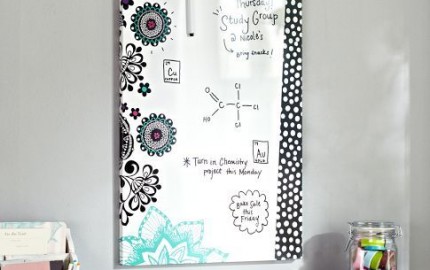 Thursday!
Study Group
@ Nicole's
bring snacks!
Cu
O
Cl
C
Cl
HO
Cl
Au
* Turn in Chemistry
project this Monday
Bake Sale
this
Friday